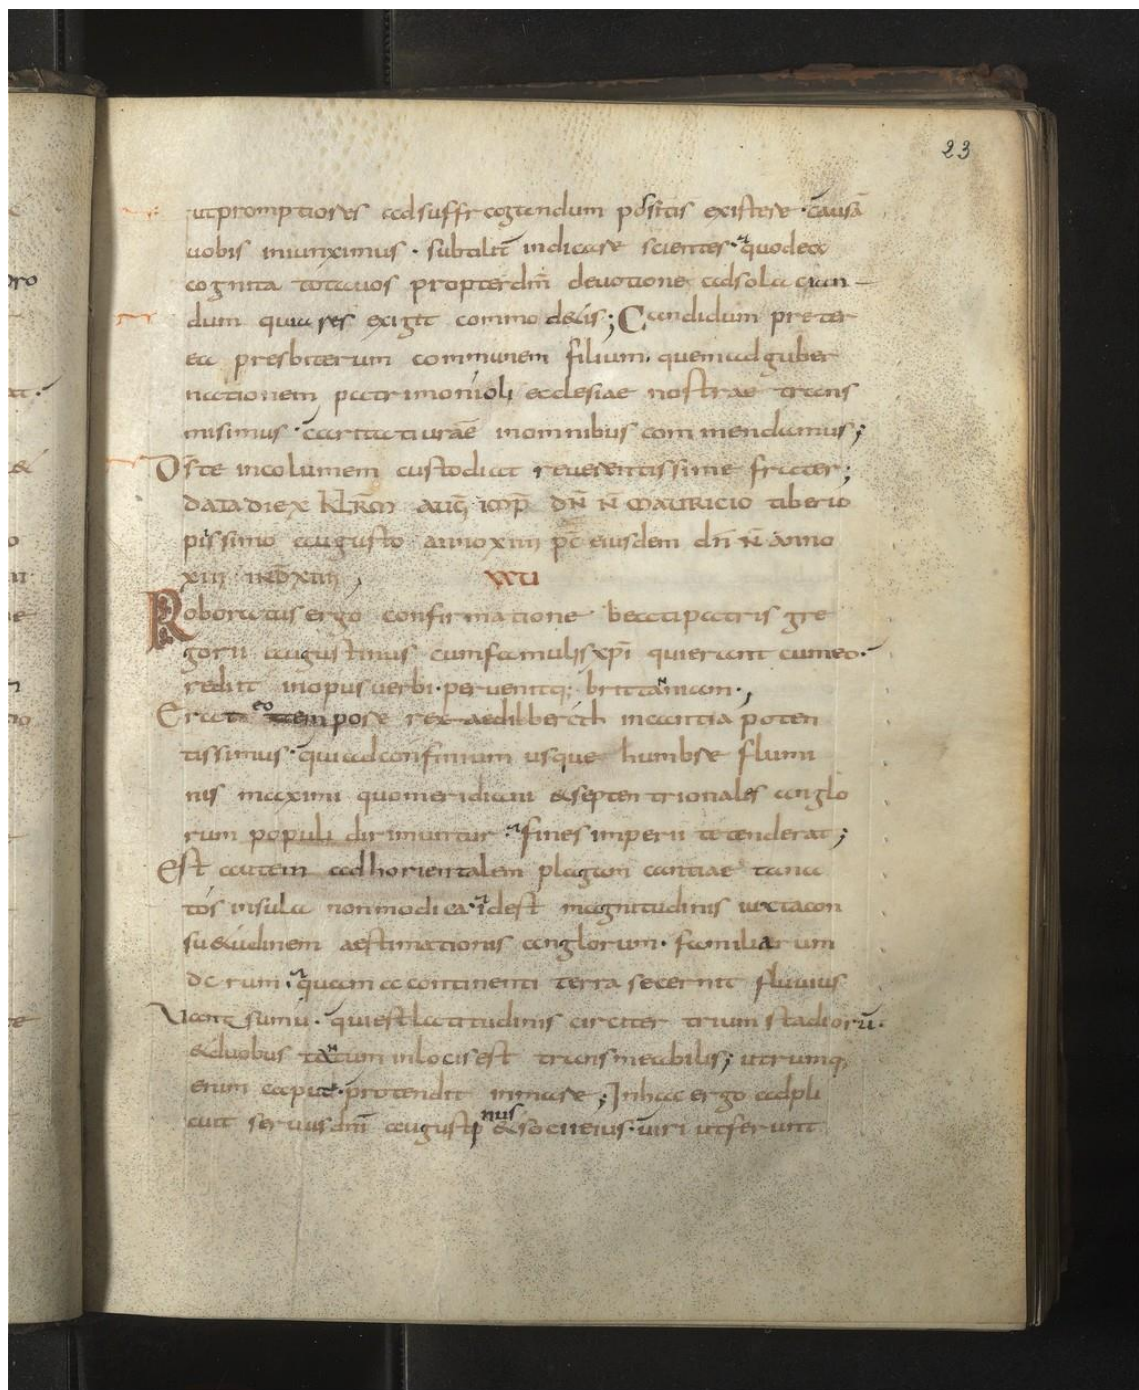 23
ut promptiores ad suffragandum possitis existere · causā
uobis iniunximus · subtilit̄ indicare scientes · quod ea
cognita tota uos propter dm̄ deuotione ad solacian-
dum quia res exigit commodetis; Candidum preter
ea presbiterum communem filium · quem ad guber
nationem patrimonioli ecclesiae nostrae trans
misimus · caritati urāe in omnibus commendamus;
Ds̄ te incolumem custodiat reuerentissime frater;
data die x kl̄rm̄ aug̅ imp̄ dn̄ n̄ mauricio tiberio
piissimo augusto anno xiiii pc̄ eiusdem dn̄ n̄ anno
xiii ind̄ xiiii;
xxu
Roboratus ergo confirmatione beati patris gre
gorii augustinus cum famulis xp̄i qui erant cum eo ·
rediit in opus uerbi · peruenitq; brittaniam;
Erat eo tempore rex aedilberéth in cantia poten
tissimus · qui ad confinium usque humbre flumi
nis maximi quo meridiani & septentrionales anglo
rum populi dirimuntur · fines imperii tetenderat;
Est autem ad horientalem plagam cantiae tana
tós insula non modica · idest magnitudinis iuxta con
su&udinem aestimationis anglorum · familiarum
dc rum · quam a continenti terra secernit fluuius
Uantsumu · qui est latitudinis circiter trium stadiorū ·
& duobus tantum in locis est transmeabilis; utrumq;
enim caput · protendit in mare; In hac ergo adpli
cuit seruus dm̄ augustinus & socii eius · uiri ut ferunt